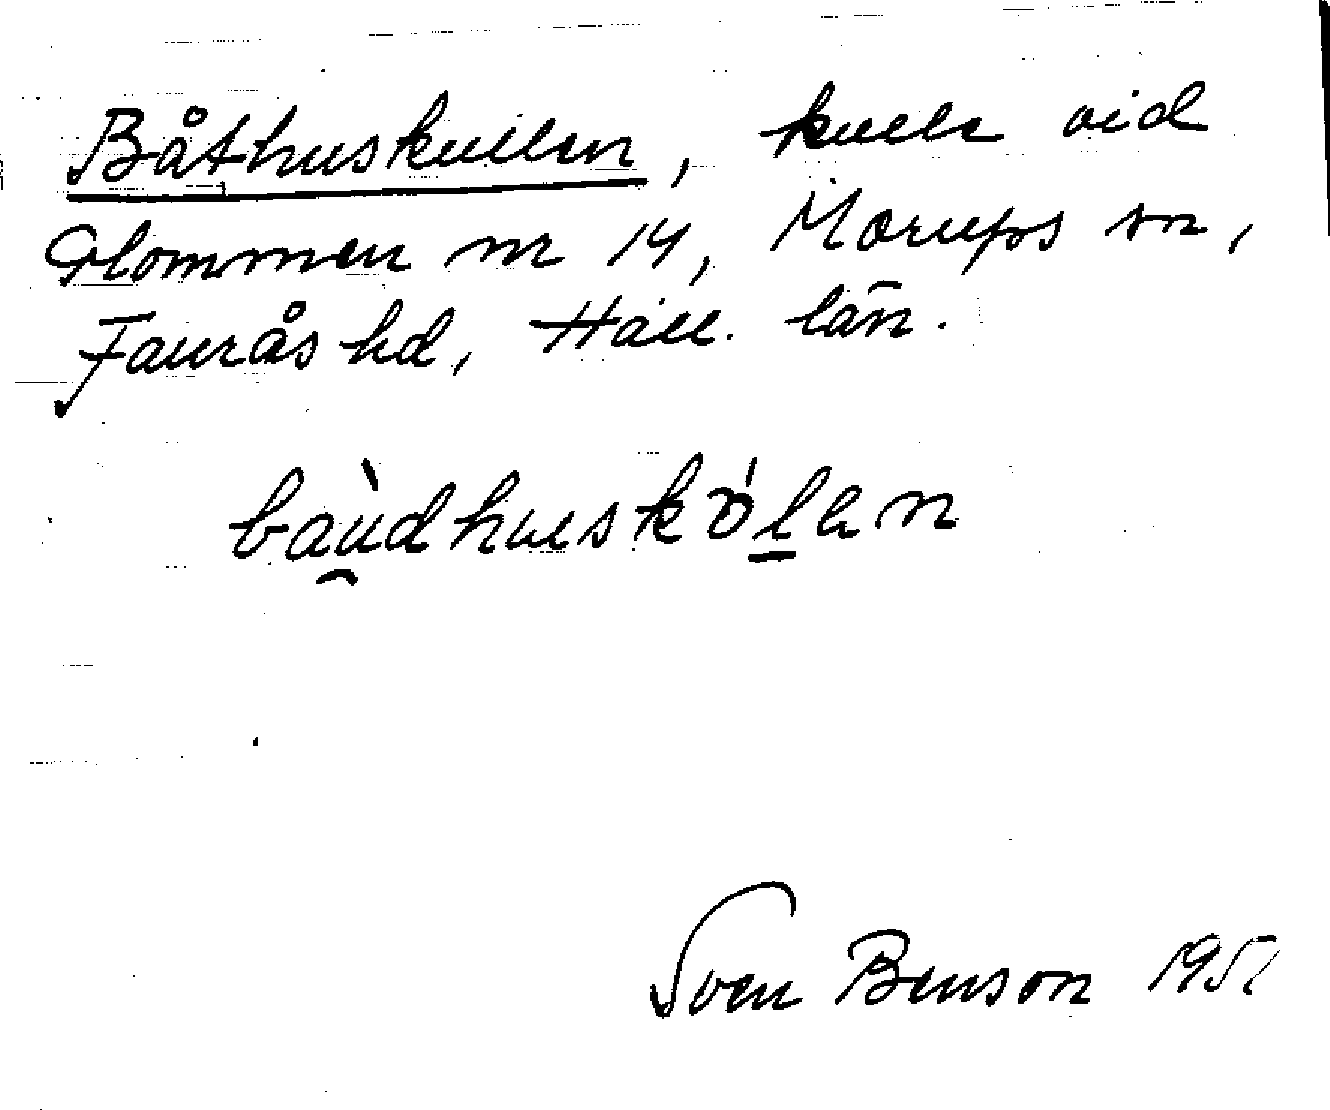 Båthuskullen, kulle vid
Glommen nr 14, Morups sn,
Faurås hd, Hall. län.
baù̯dhuskɷ́l̠an
Sven Benson 1951